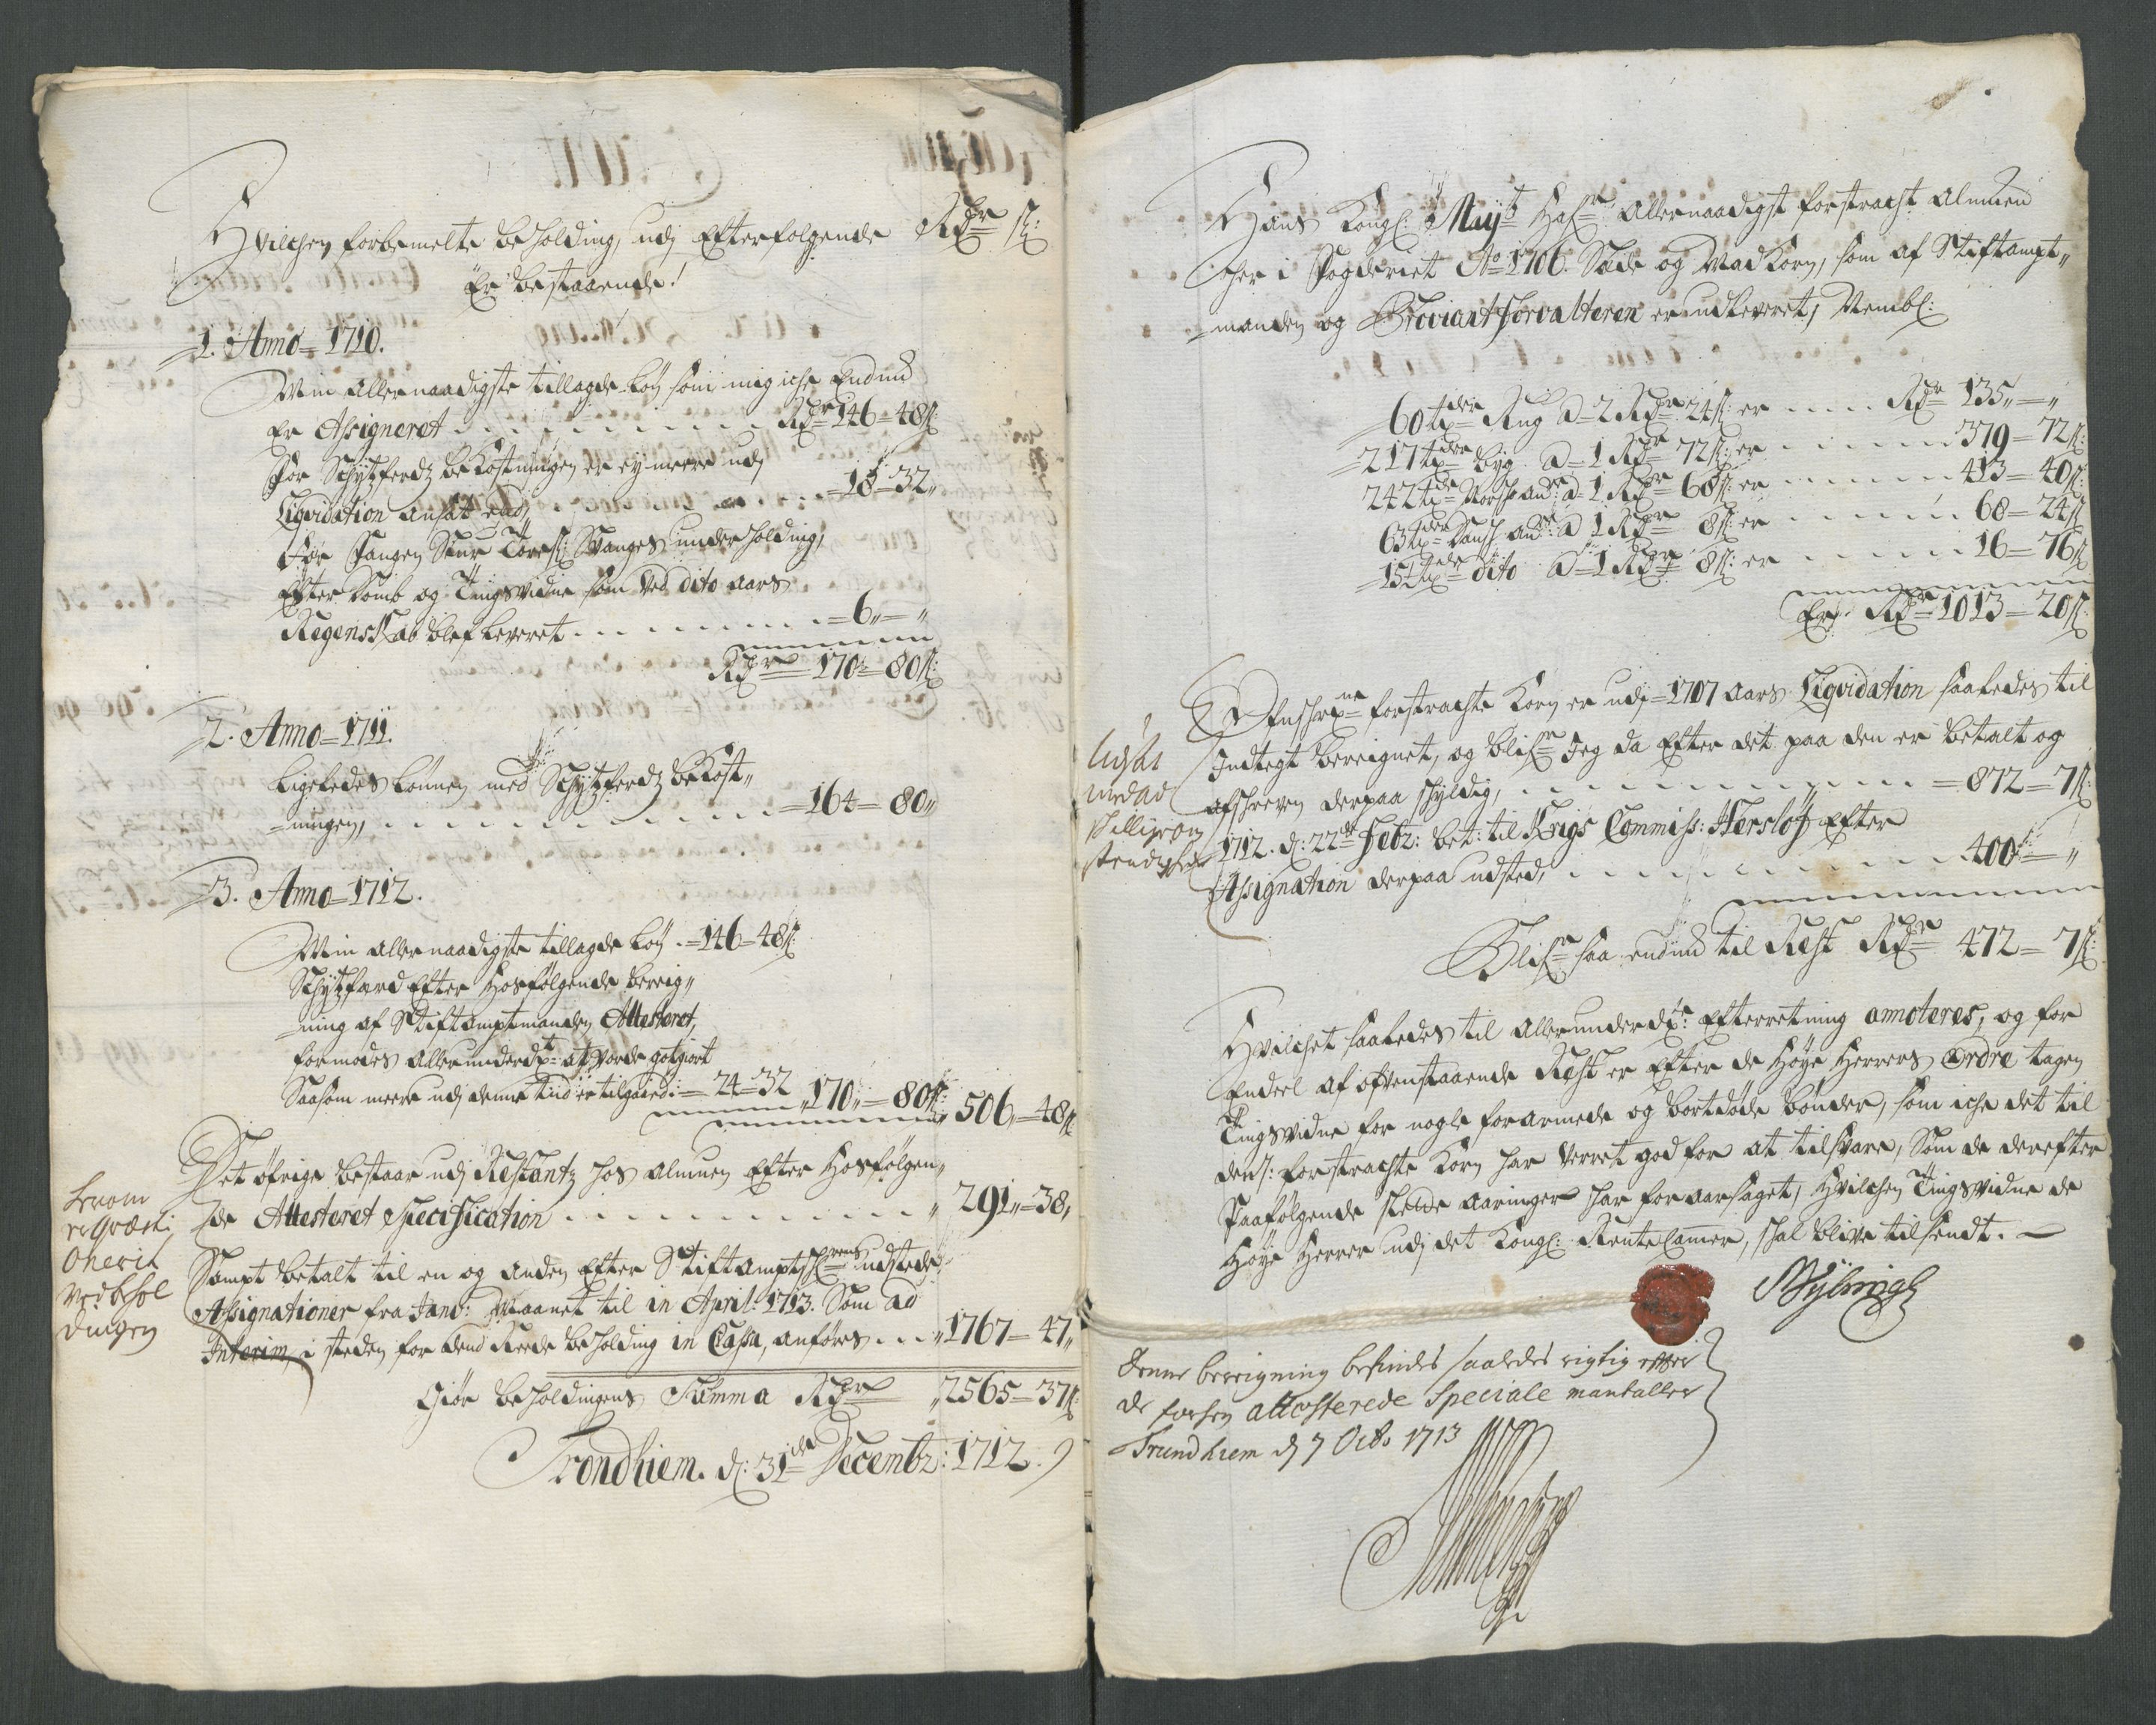 Hvilchen forbemelte beholding, udj Efterfølgende Rdr ſ:
Er bestaaende!
1. Anno 1710.
Min allernaadigste tillagde løn som mig iche Endnu
Er Assigneret . . . . Rdr 146 = 48ſ
For Schydtzferdtz bekostningen er ej meere udj
Liqvidation ansat end, . . . = 18 = 32„
For Fangen Siur Toresl: Svanges underholding,
Efter Domb og Tingsvidne som ved dito aars
Regenschab blef leveret . . . . = 6„ = „
Rdr 170 = 80ſ:
2. Anno = 1711.
Ligeledes lønnen med Schydtzferdtz bekost„
=ningen, . . . . = 164 = 80„
3. Anno = 1712.
Min allernaadigste tillagde løn . = 146 = 48ſ:
Schydtzferd Efter Hosfølgende bereig„
=ning af Stiftamptmanden Attesteret,
formodes allerunderdt at vorde gotgiort
Saasom meere udj denne tiid er tilgaaed: = 24 = 32 „170„ = 80ſ: „506„ = 48ſ
Det øfrige bestaar udj Restantz hos almuen Efter Hosfølgen„
de Attesteret Specification . . . . „ 291„ = 38„
Sampt betalt til en og anden Efter Stiftamptschrerens udstede
Assignationer fra Janv: Maanet til in April: 1713. Som ad
Interim, i steden for dend Reede beholding in Cassa, anføres . . „1767 = 47„
Giør beholdingens Summa Rdr „2565 = 37ſ:
Trondhiem. d: 31de Decembr: 1712.
herom
ergiöres
Ved behol
dingen
Hans Kongl: Mayts Hafr allernaadigst forstracht almuen
her i Fogderiet Ao 1706. Sæde og Madkorn, som af Stiftampt„
=manden og Proviantforvalteren er udleveret, Nembl:
60 tdr Rug â 2 Rdr 24ſ: er . . . Rdr 135„ = „
217 tdr byg â 1 Rdr 72ſ: er . . . 379 = 72ſ:
242 tdr Norsch aufr: â 1 Rdr 68ſ: er . . . 413 = 40ſ:
63 tdr Dansch aufr: â 1 Rdr 8ſ: er . . . 68 = 24ſ
15½ tdr dito â 1 Rdr 8ſ: er . . . 16 = 76ſ
Er Rdr 1013 = 20ſ:
Ofuenschrefne forstrachte Korn er udj 1707 aars Liqvidation saaledes til
Indtegt bereignet, og blifr Jeg da Efter det paa den er betalt og
afschreven derpaa schyldig, . . . . = 872 = 7ſ:
1712. d: 22de Febr: bet: til Krigs Commiss: Hersløf Efter
Assignation derpaa udsted, . . . . 400 = „
Blifr saa endnu til Rest Rdr 472 = 7ſ:
Hvilchet saaledes til allerunderdte: Efterretning annoteres, og for
Endeel af ofvenstaaende Rest er Efter de Høye Herrers Ordre tagen
Tingsvidne for nogle forarmede og bortdøde bønder, som iche det til
dem: forstrachte Korn har verret god for at tilsvare, Som de derefter
Paafølgende slette aaringer har foraarsaget, Hvilchen Tingsvidne de
Høye Herrer udj det Kongl: Rente Camer, schal blive tilsendt.
Denne bereigning befindes saaledes rigtig efter
de forhen attesterede Speciale mantaller
Trundhiem d 7 Octb: 1713